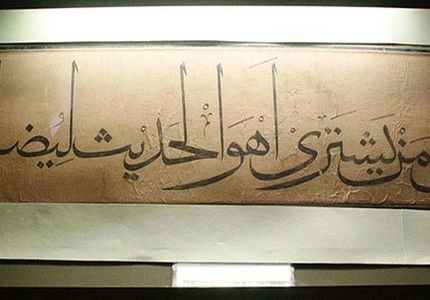 من يشتري لهو الحديث ليضـ